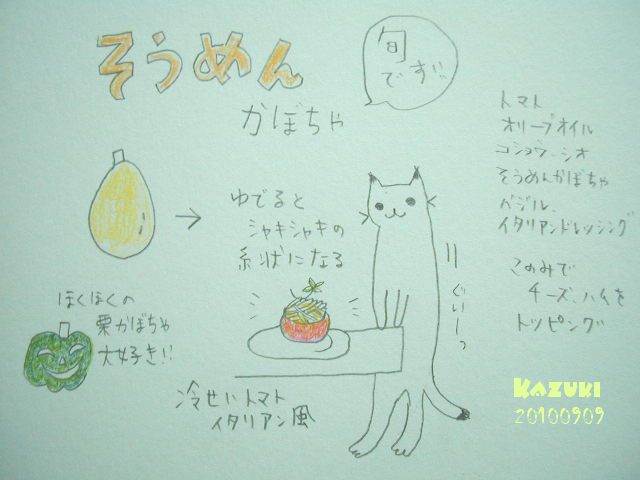 そうめん
かぼちゃ
旬
です。
トマト
オリーブオイル
コショウ、シオ
そうめんかぼちゃ
バジル、
イタリアンドレッシング
このみで
チーズ、ハムを
トッピング
ゆでると
シャキシャキの
糸状になる
ぐぃーっ
ほくほくの
栗かぼちゃ
大好き!!
冷せいトマト
イタリアン風
KAZUKI
20100909